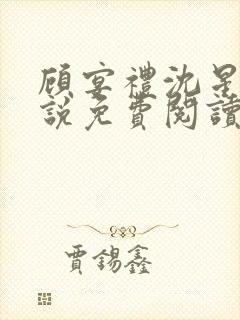 顧宴禮沈星
說免費閱讀
賈錫鑫